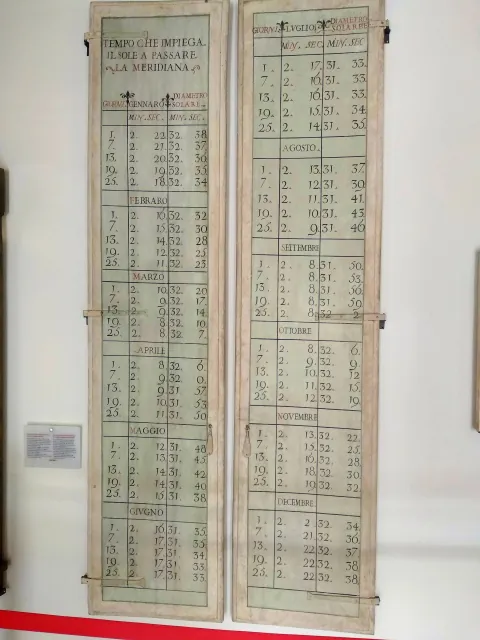 TEMPO CHE IMPIEGA
IL SOLE A PASSARE
LA MERIDIANA
GIORNI GENNARO DIAMETRO SOLARE
MIN. SEC. MIN. SEC.
1. 2. 22 32 38
7. 2. 21. 32. 37
13. 2. 20. 32. 36
19. 2. 19. 32. 35
25. 2. 18. 32. 34
FEBRARO
1. 2. 16. 32. 32
7. 2. 15. 32. 30
13. 2. 14. 32. 28
19. 2. 12. 32. 25
25. 2. 11. 32. 23
MARZO
1. 2. 10. 32. 20
7. 2. 9. 32. 17
13. 2. 9. 32. 14
19. 2. 8. 32. 10
25. 2. 8. 32. 7.
APRILE
1. 2. 8. 32. 6.
7. 2. 9. 32. 0.
13. 2. 9. 31. 57
19. 2. 10. 31. 53
25. 2. 11. 31. 50
MAGGIO
1. 2. 12. 31. 48
7. 2. 13. 31. 45
13. 2. 14. 31. 42
19. 2. 14. 31. 40
25. 2. 15. 31. 38
GIVGNO
1. 2. 16. 31. 35
7. 2. 17. 31. 35
13. 2. 17. 31. 34
19. 2. 17. 31. 33
25. 2. 17. 31. 33
GIORNI LVGLIO DIAMETRO SOLARE
MIN. SEC. MIN. SEC.
1. 2. 17. 31. 33.
7. 2. 16. 31. 33.
13. 2. 16. 31. 33.
19. 2. 15. 31. 34
25. 2. 14. 31. 35
AGOSTO
1. 2. 13. 31. 37
7. 2. 12. 31. 39
13. 2. 11. 31. 41
19. 2. 10. 31. 43
25. 2. 9. 31. 46
SETTEMBRE
1. 2. 8. 31. 50
7. 2. 8. 31. 53
13. 2. 8. 31. 56
19. 2. 8. 31. 59
25. 2. 8. 32. 2.
OTTOBRE
1. 2. 8. 32. 6.
7. 2. 9. 32. 9.
13. 2. 10. 32. 12
19. 2. 11. 32. 15
25. 2. 12. 32. 19
NOVEMBRE
1. 2. 13. 32. 22
7. 2. 15. 32. 25
13. 2. 16. 32. 28
19. 2. 18. 32. 30
25. 2. 19. 32. 32
DECEMBRE
1. 2. 32. 34
7. 2. 21. 32. 36
13. 2. 22. 32. 37
19. 2. 22. 32. 38
25. 2. 22. 32. 38